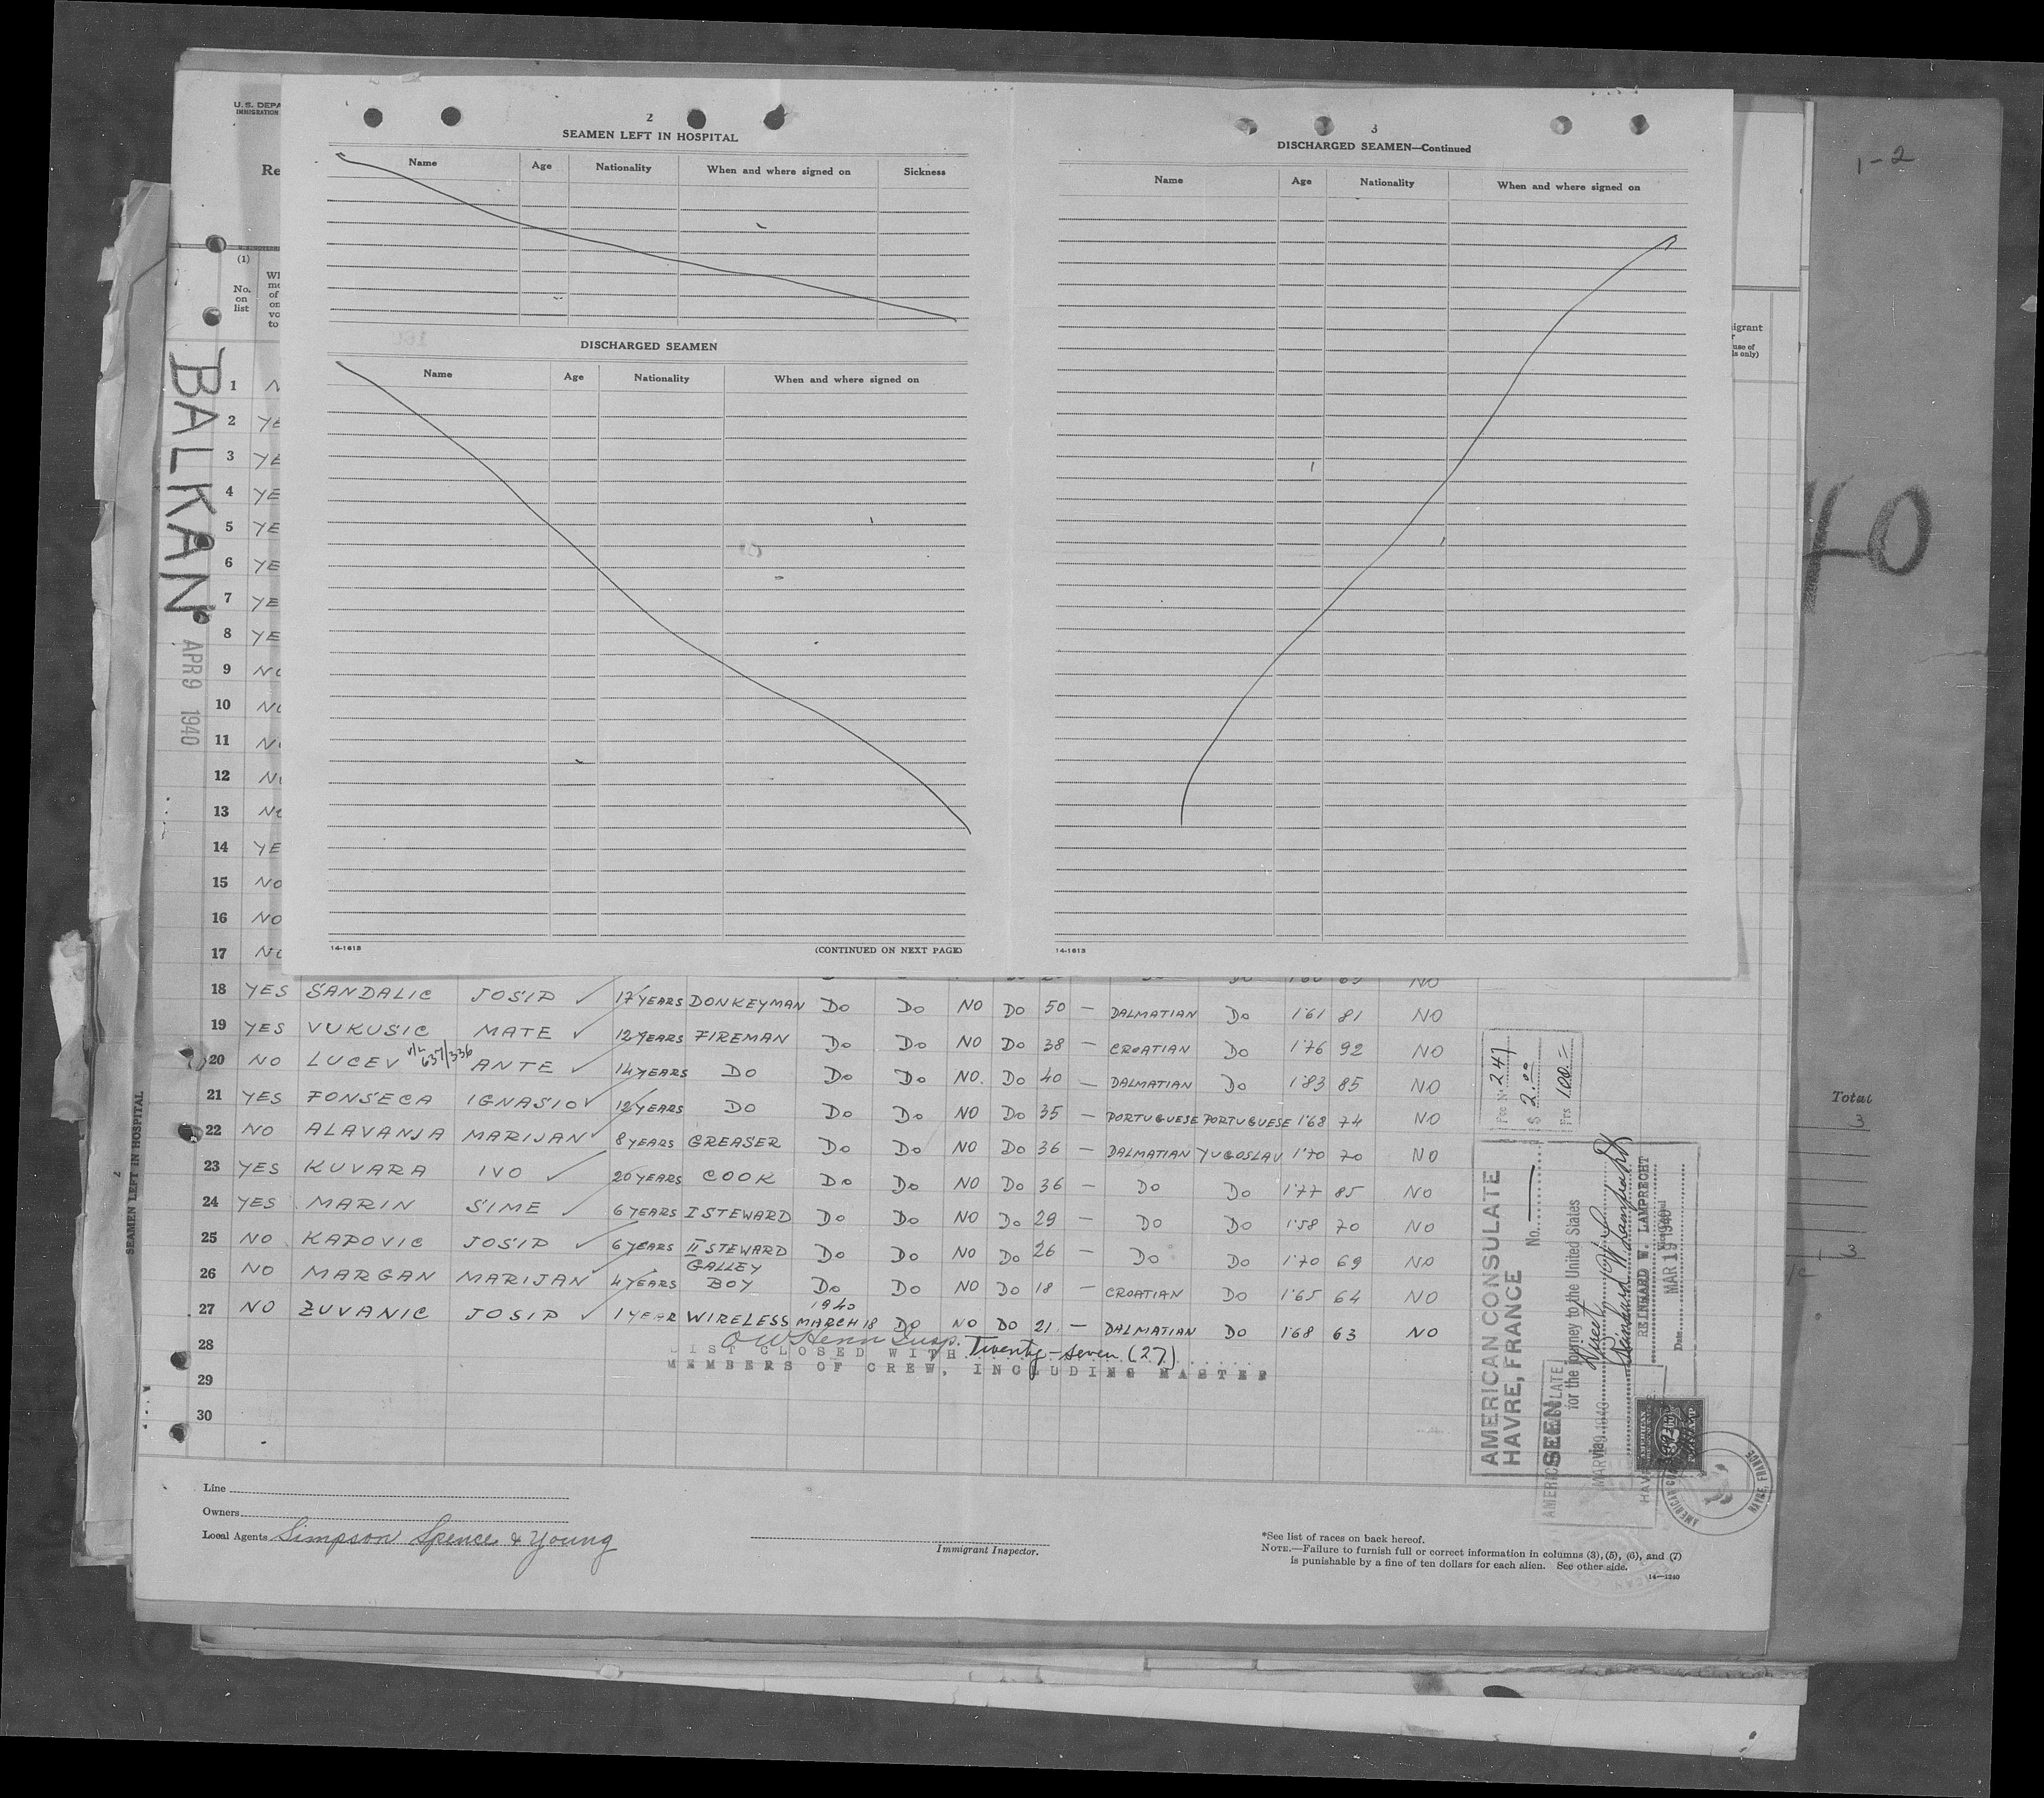 U.S. DEPA
IMMIGRATION
Re
2
SEAMEN LEFT IN HOSPITAL
Name Age Nationality When and where signed on Sickness
DISCHARGED SEAMEN
Name Age Nationality When and where signed on
14-1613 (CONTINUED ON NEXT PAGE)
3
DISCHARGED SEAMEN—Continued
Name Age Nationality When and where signed on
14-1613
1-2
40
(1)
No.
on
list
igrant
use of
ls only)
BALKAN
APR 9 1940
1 N
2 YE
3 YE
4 YE
5 YE
6 YE
7 YE
8 YE
9 NO
10 NO
11 N
12 NO
13 NO
14 YE
15 NO
16 NO
17 NO
18 YES SANDALIC JOSIP ✓ 17 YEARS DONKEYMAN Do Do NO Do 50 — DALMATIAN Do 1'61 81 NO
19 YES VUKUSIC MATE ✓ 12 YEARS FIREMAN Do Do NO Do 38 — CROATIAN Do 1'76 92 NO
20 NO LUCEV 637/336 ANTE ✓ 14 YEARS DO Do Do NO. Do 40 — DALMATIAN Do 1'83 85 NO
21 YES FONSECA IGNASIO ✓ 12 YEARS DO Do Do NO Do 35 — PORTUGUESE PORTUGUESE 1'68 74 NO
22 NO ALAVANJA MARIJAN ✓ 8 YEARS GREASER Do Do NO Do 36 — DALMATIAN YUGOSLAV 1'70 70 NO
23 YES KUVARA IVO ✓ 20 YEARS COOK Do Do NO Do 36 — Do Do 1'77 85 NO
24 YES MARIN SIME ✓ 6 YEARS I STEWARD Do Do NO Do 29 — Do Do 1'58 70 NO
25 NO KAPOVIC JOSIP ✓ 6 YEARS II STEWARD Do Do NO Do 26 — Do Do 1'70 69 NO
26 NO MARGAN MARIJAN ✓ 4 YEARS GALLEY BOY Do Do NO Do 18 — CROATIAN Do 1'65 64 NO
27 NO ZUVANIC JOSIP ✓ 1 YEAR WIRELESS 1940 MARCH 18 Do NO DO 21 — DALMATIAN Do 1'68 63 NO
28 LIST CLOSED WITH Twenty-seven (27)
MEMBERS OF CREW, INCLUDING MASTER
29
30
Fee No 247
$ 2.00
Frs 100.=
AMERICAN CONSULATE
HAVRE, FRANCE
No.
SEEN
for the journey to the United States
REINHARD W. LAMPRECHT
Date MAR 19 1940
Total
3
3
SEAMEN LEFT IN HOSPITAL
2
Line
Owners
Local Agents Simpson Spence & Young
Immigrant Inspector.
*See list of races on back hereof.
NOTE.—Failure to furnish full or correct information in columns (3), (5), (6), and (7)
is punishable by a fine of ten dollars for each alien. See other side.
14—1240